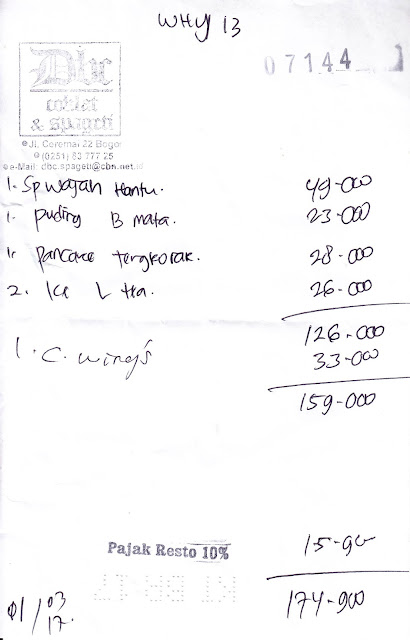 WHY 13
07144
Dbc
coklat
& spageti
Jl. Ceremai 22 Bogor
(0251) 83 777 25
e-Mail: dbc.spageti@cbn.net.id
1. Sp wajah Hantu. 49-000
1. puding B mata. 23-000
1. pancace tengkorak. 28-000
2. Ice L tea. 26-000
126-000
1. C. wing's 33-000
159-000
Pajak Resto 10% 15-900
174-900
01/03
17.